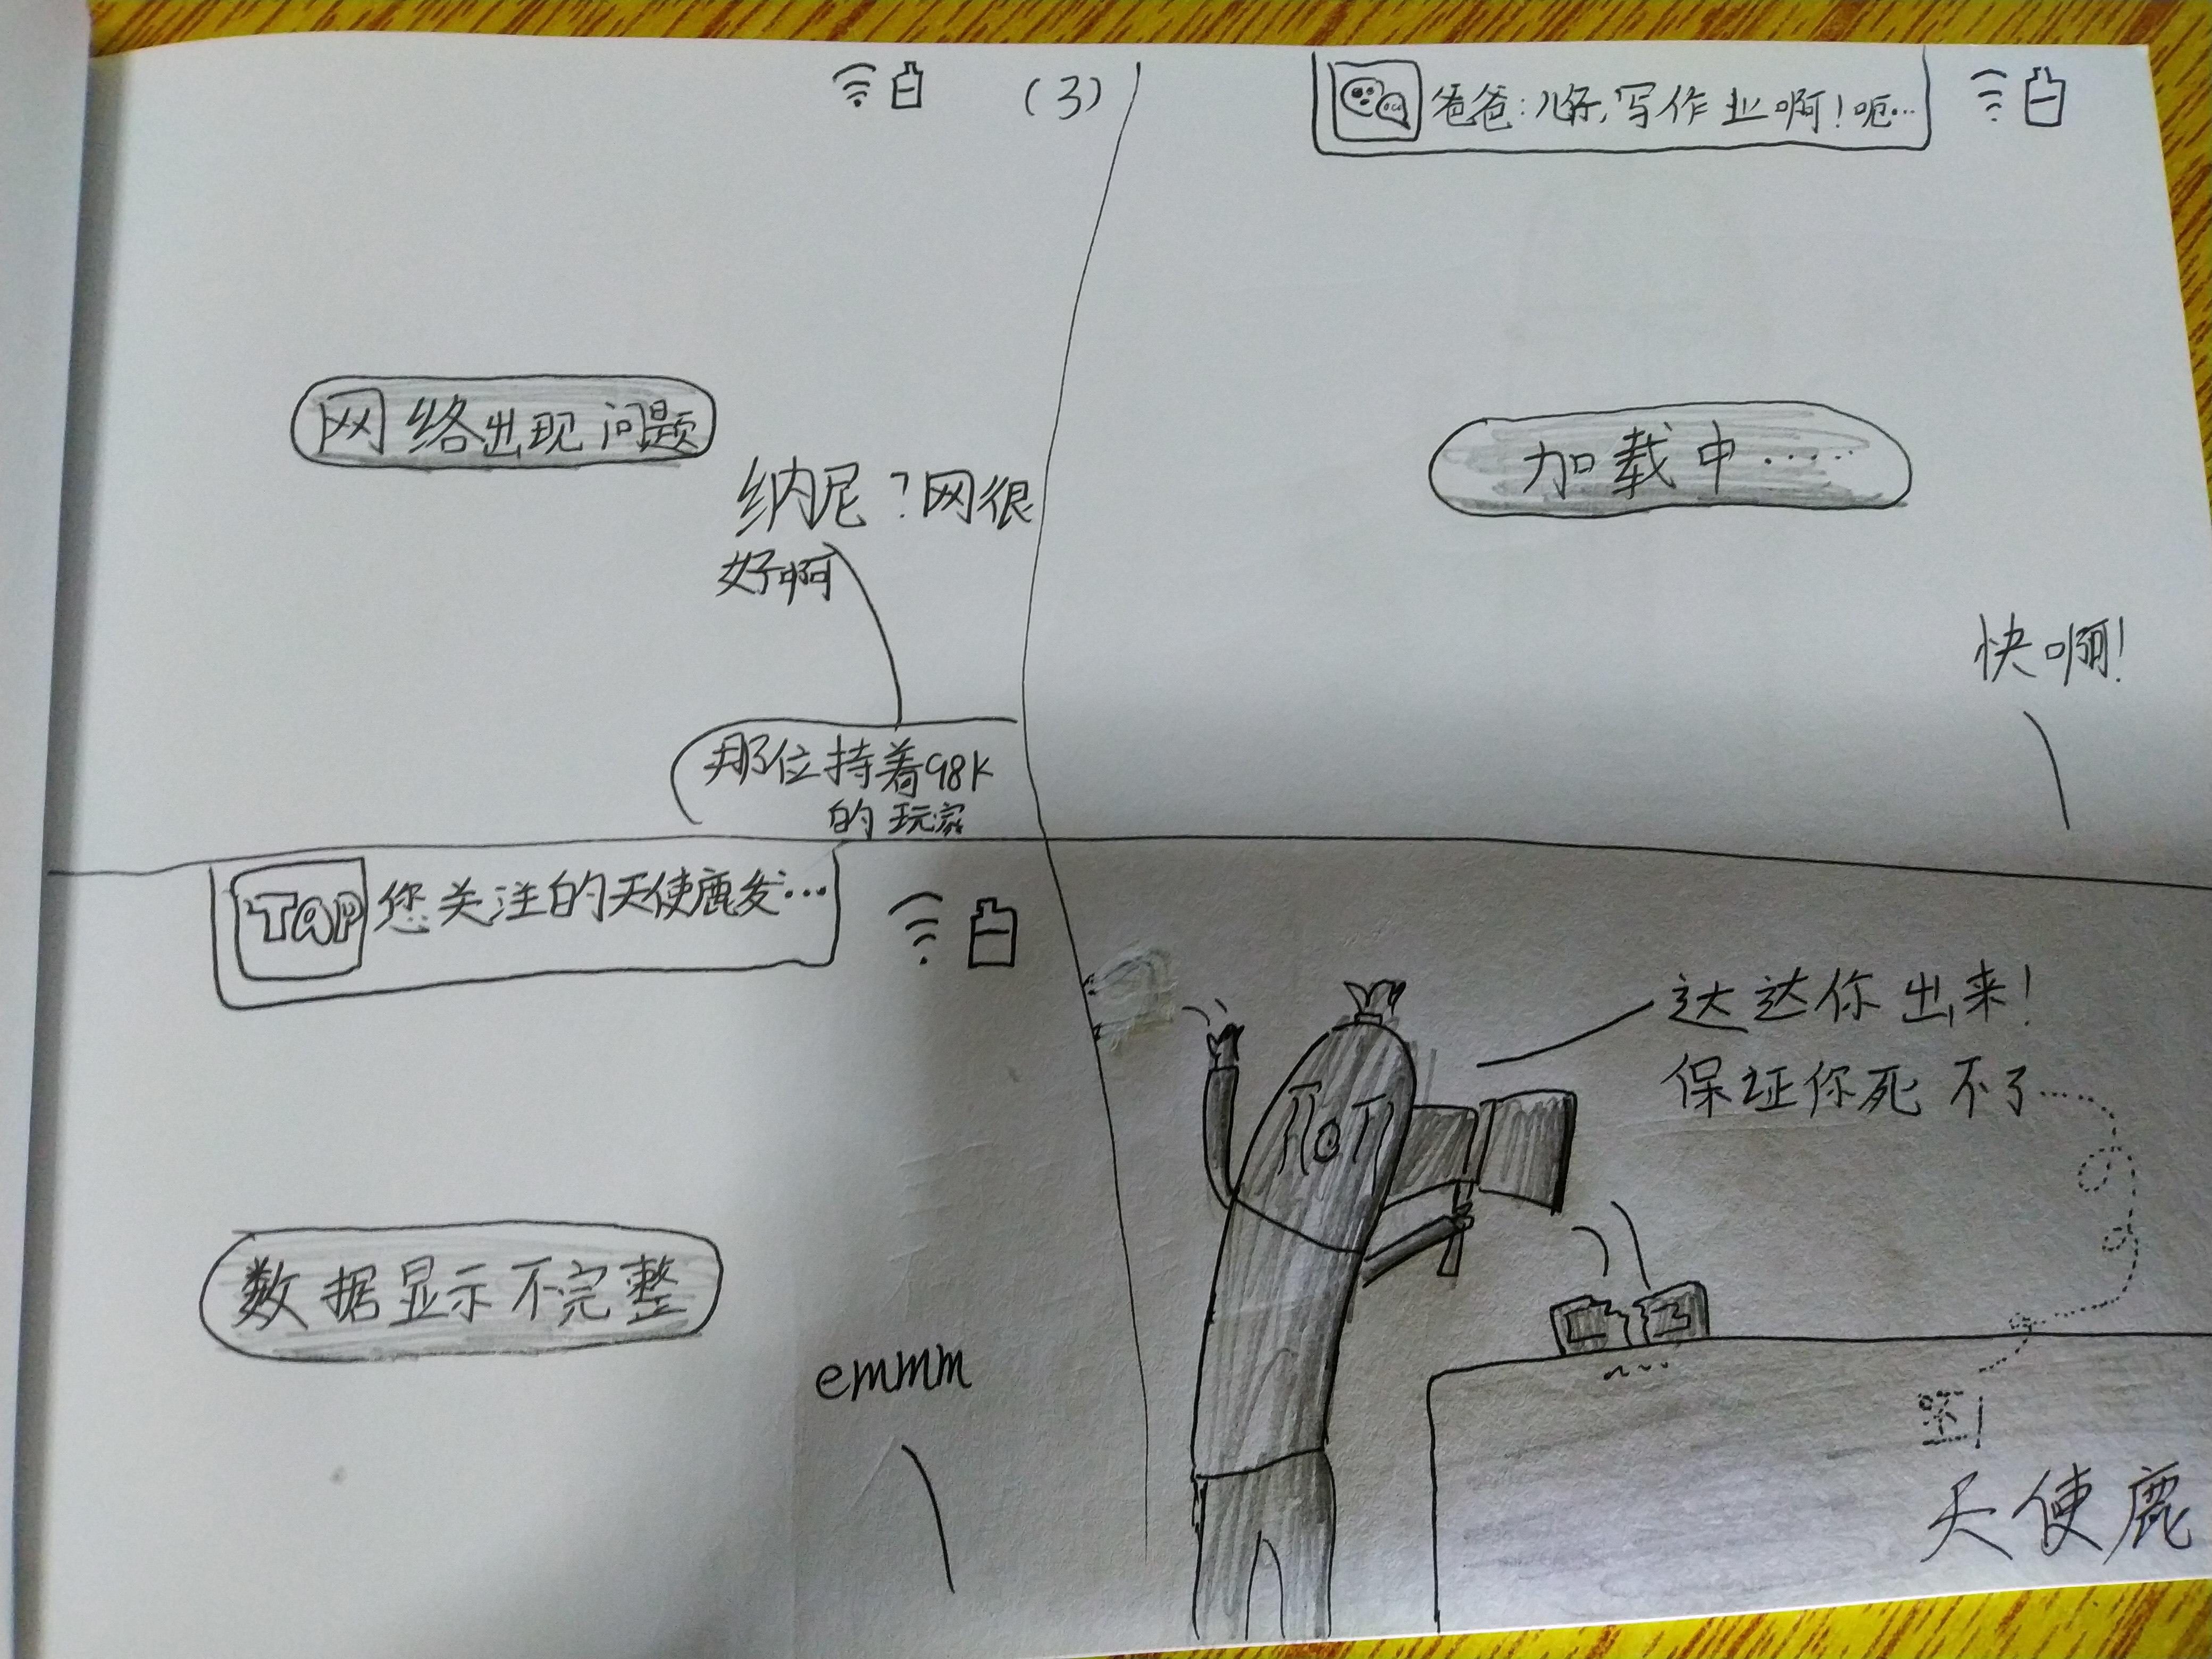 (3)
网络出现问题
纳尼？网很
好啊
那位持着98K
的玩家
爸爸：儿砸，写作业啊！呃…
加载中……
快啊！
TAP 您关注的天使鹿发…
数据显示不完整
emmm
达达你出来！
保证你死不了……
天使鹿